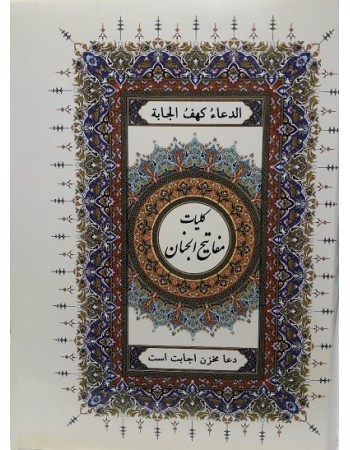 الدعاءُ کهفُ الجابة
کلیات
مفاتیح الجنان
دعا مخزن اجابت است